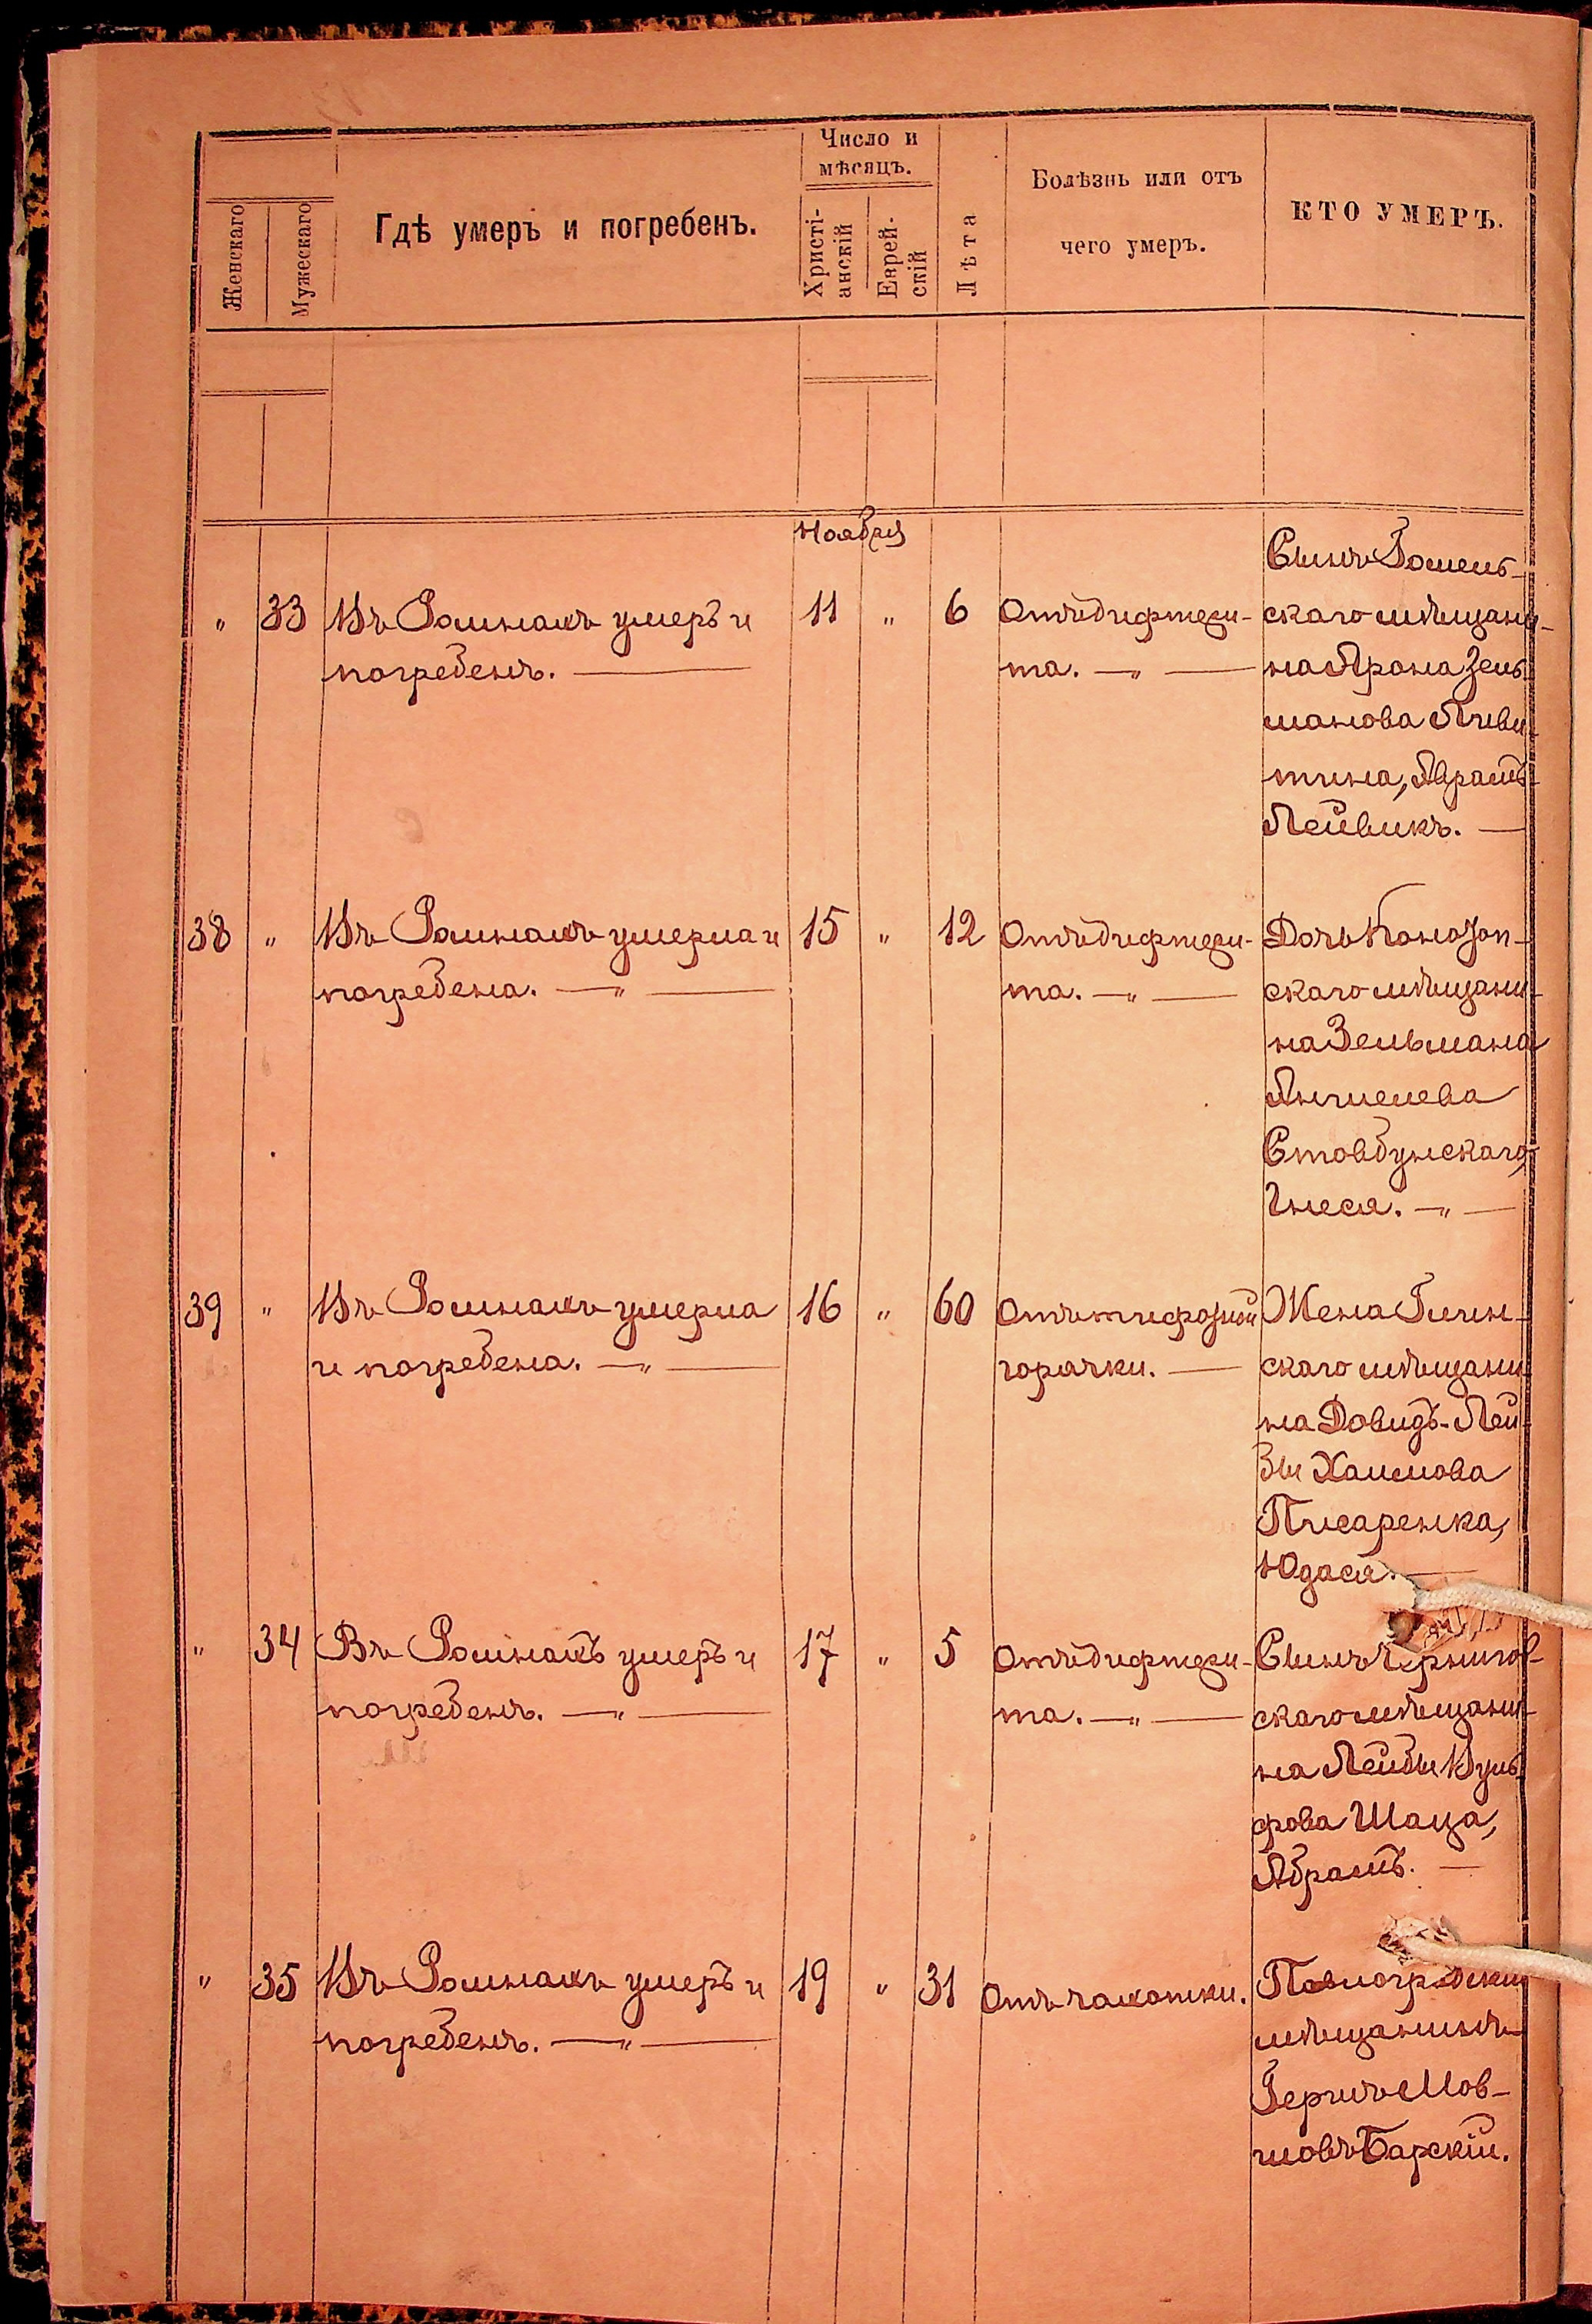 Женскаго
Мужескаго
Гдѣ умеръ и погребенъ.
Число и
мѣсяцъ.
Христі-
анскій
Еврей-
скій
Лѣта
Болѣзнь или отъ
чего умеръ.
КТО УМЕРЪ.
Ноября
" 33 Въ Ромнахъ умеръ и
погребенъ. —
11 " 6
Отъ дифтери-
та. — " —
Сынъ Гомель-
скаго мѣщани-
на Арона Зель-
манова Ливи-
тина, Аврамъ-
Лейвикъ. —
38 " Въ Ромнахъ умерла и
погребена. — " —
15 " 12
Отъ дифтери-
та. — " —
Дочь Конотоп-
скаго мѣщани-
на Зельмана
Анчелева
Стовбунскаго,
Гнеся. — " —
39 " Въ Ромнахъ умерла
и погребена. — " —
16 " 60
Отъ тифозной
горячки. —
Жена Глин-
скаго мѣщани-
на Довидъ-Лей-
зы Хаимова
Писаренка,
Юдася. —
" 34 Въ Ромнахъ умеръ и
погребенъ. — " —
17 " 5
Отъ дифтери-
та. — " —
Сынъ Чернигов-
скаго мѣщани-
на Лейбы Вуль-
фова Шаца,
Абрамъ. —
" 35 Въ Ромнахъ умеръ и
погребенъ. — " —
19 " 31
Отъ чахотки.
Павлоградскій
мѣщанинъ
Герцъ Мов-
шовъ Барскій.